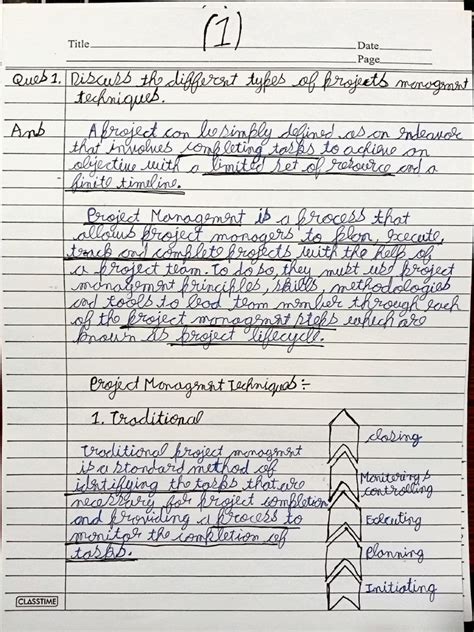 (1)
Title
Date
Page
Ques 1. Discuss the different types of projects managment
techniques.
Ans A project can be simply defined as an endeavor
that involves completing tasks to achieve an
objective with a limited set of resource and a
finite timeline.
Project Management is a process that
allows project managers to plan, execute,
track and complete projects with the help of
a project team. To do so, they must use project
management principles, skills, methodologies
and tools to lead team member through each
of the project managment steps which are
known as project lifecycle.
Project Managment Techniques :-
1. Traditional
Traditional project managment
is a standard method of
identifying the tasks that are
necessary for project completion
and providing a process to
monitor the completion of
tasks.
closing
Monitering &
controlling
Executing
Planning
Initiating
CLASSTIME